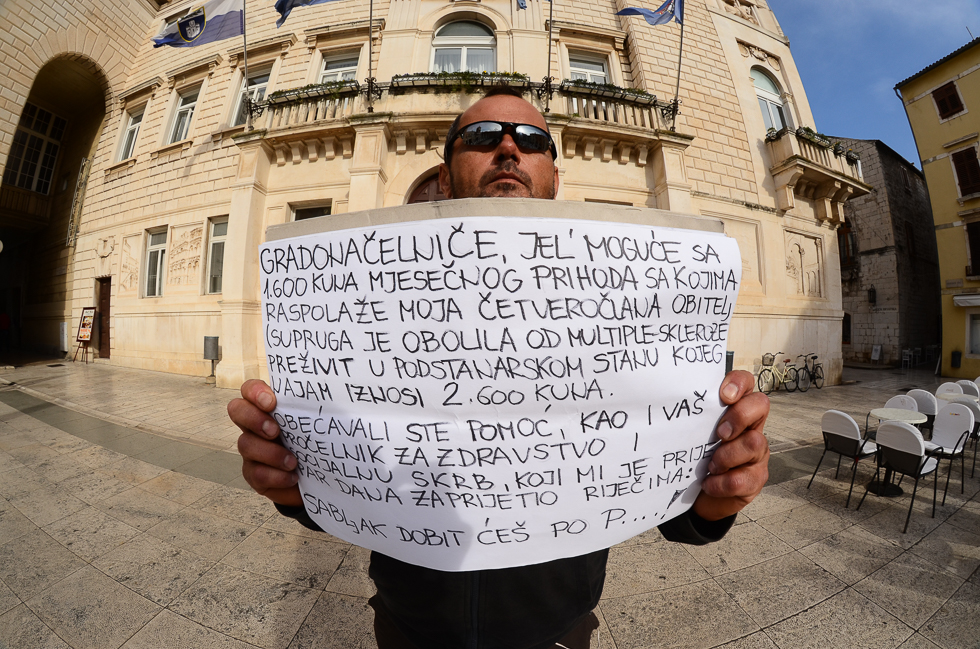 GRADONAČELNIČE, JEL' MOGUĆE SA
1.600 KUNA MJESEČNOG PRIHODA SA KOJIMA
RASPOLAŽE MOJA ČETVEROČLANA OBITELJ
(SUPRUGA JE OBOLILA OD MULTIPLE-SKLEROZE
PREŽIVIT U PODSTANARSKOM STANU KOJEG
NAJAM IZNOSI 2.600 KUNA.
OBEĆAVALI STE POMOĆ, KAO I VAŠ
PROČELNIK ZA ZDRAVSTVO I
SOCIJALNU SKRB, KOJI MI JE PRIJE
PAR DANA ZAPRIJETIO RIJEČIMA:
SABLJAK DOBIT ĆEŠ PO P.....!